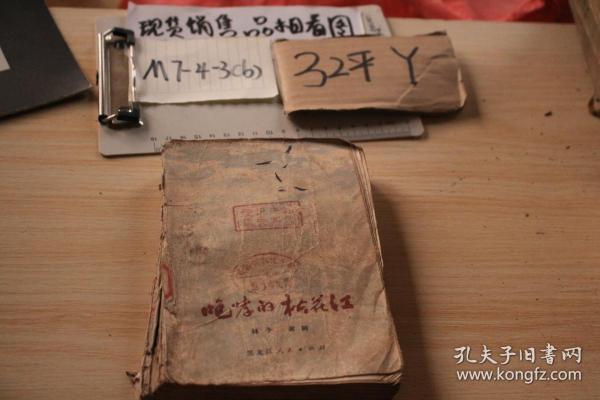 现货销售品相看图
117-4-3(6)
32平 Y
咆哮的松花江
林予 谢树
黑龙江人民出版社
孔夫子旧书网
www.kongfz.com